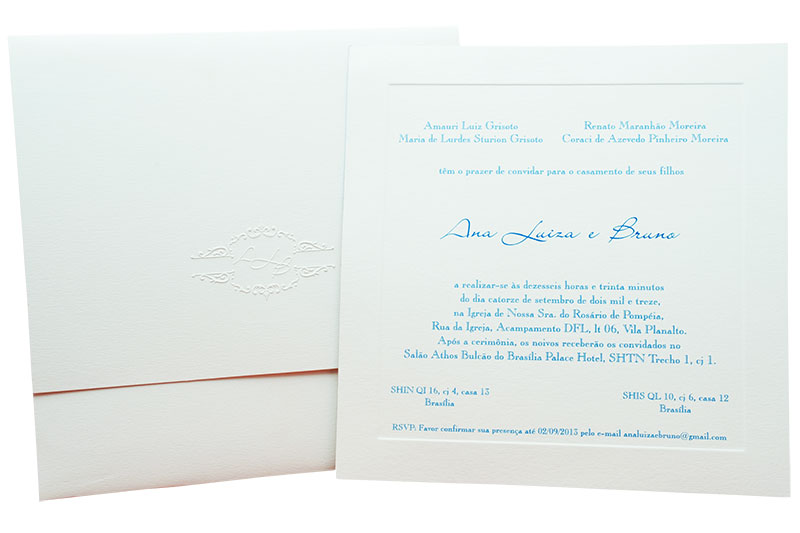 Amauri Luiz Grisoto
Maria de Lurdes Sturion Grisoto
Renato Maranhão Moreira
Coraci de Azevedo Pinheiro Moreira
têm o prazer de convidar para o casamento de seus filhos
Ana Luiza e Bruno
a realizar-se às dezesseis horas e trinta minutos
do dia catorze de setembro de dois mil e treze,
na Igreja de Nossa Sra. do Rosário de Pompéia,
Rua da Igreja, Acampamento DFL, lt 06, Vila Planalto.
Após a cerimônia, os noivos receberão os convidados no
Salão Athos Bulcão do Brasília Palace Hotel, SHTN Trecho 1, cj 1.
SHIN QI 16, cj 4, casa 13
Brasília
SHIS QL 10, cj 6, casa 12
Brasília
RSVP: Favor confirmar sua presença até 02/09/2013 pelo e-mail analuizaebruno@gmail.com